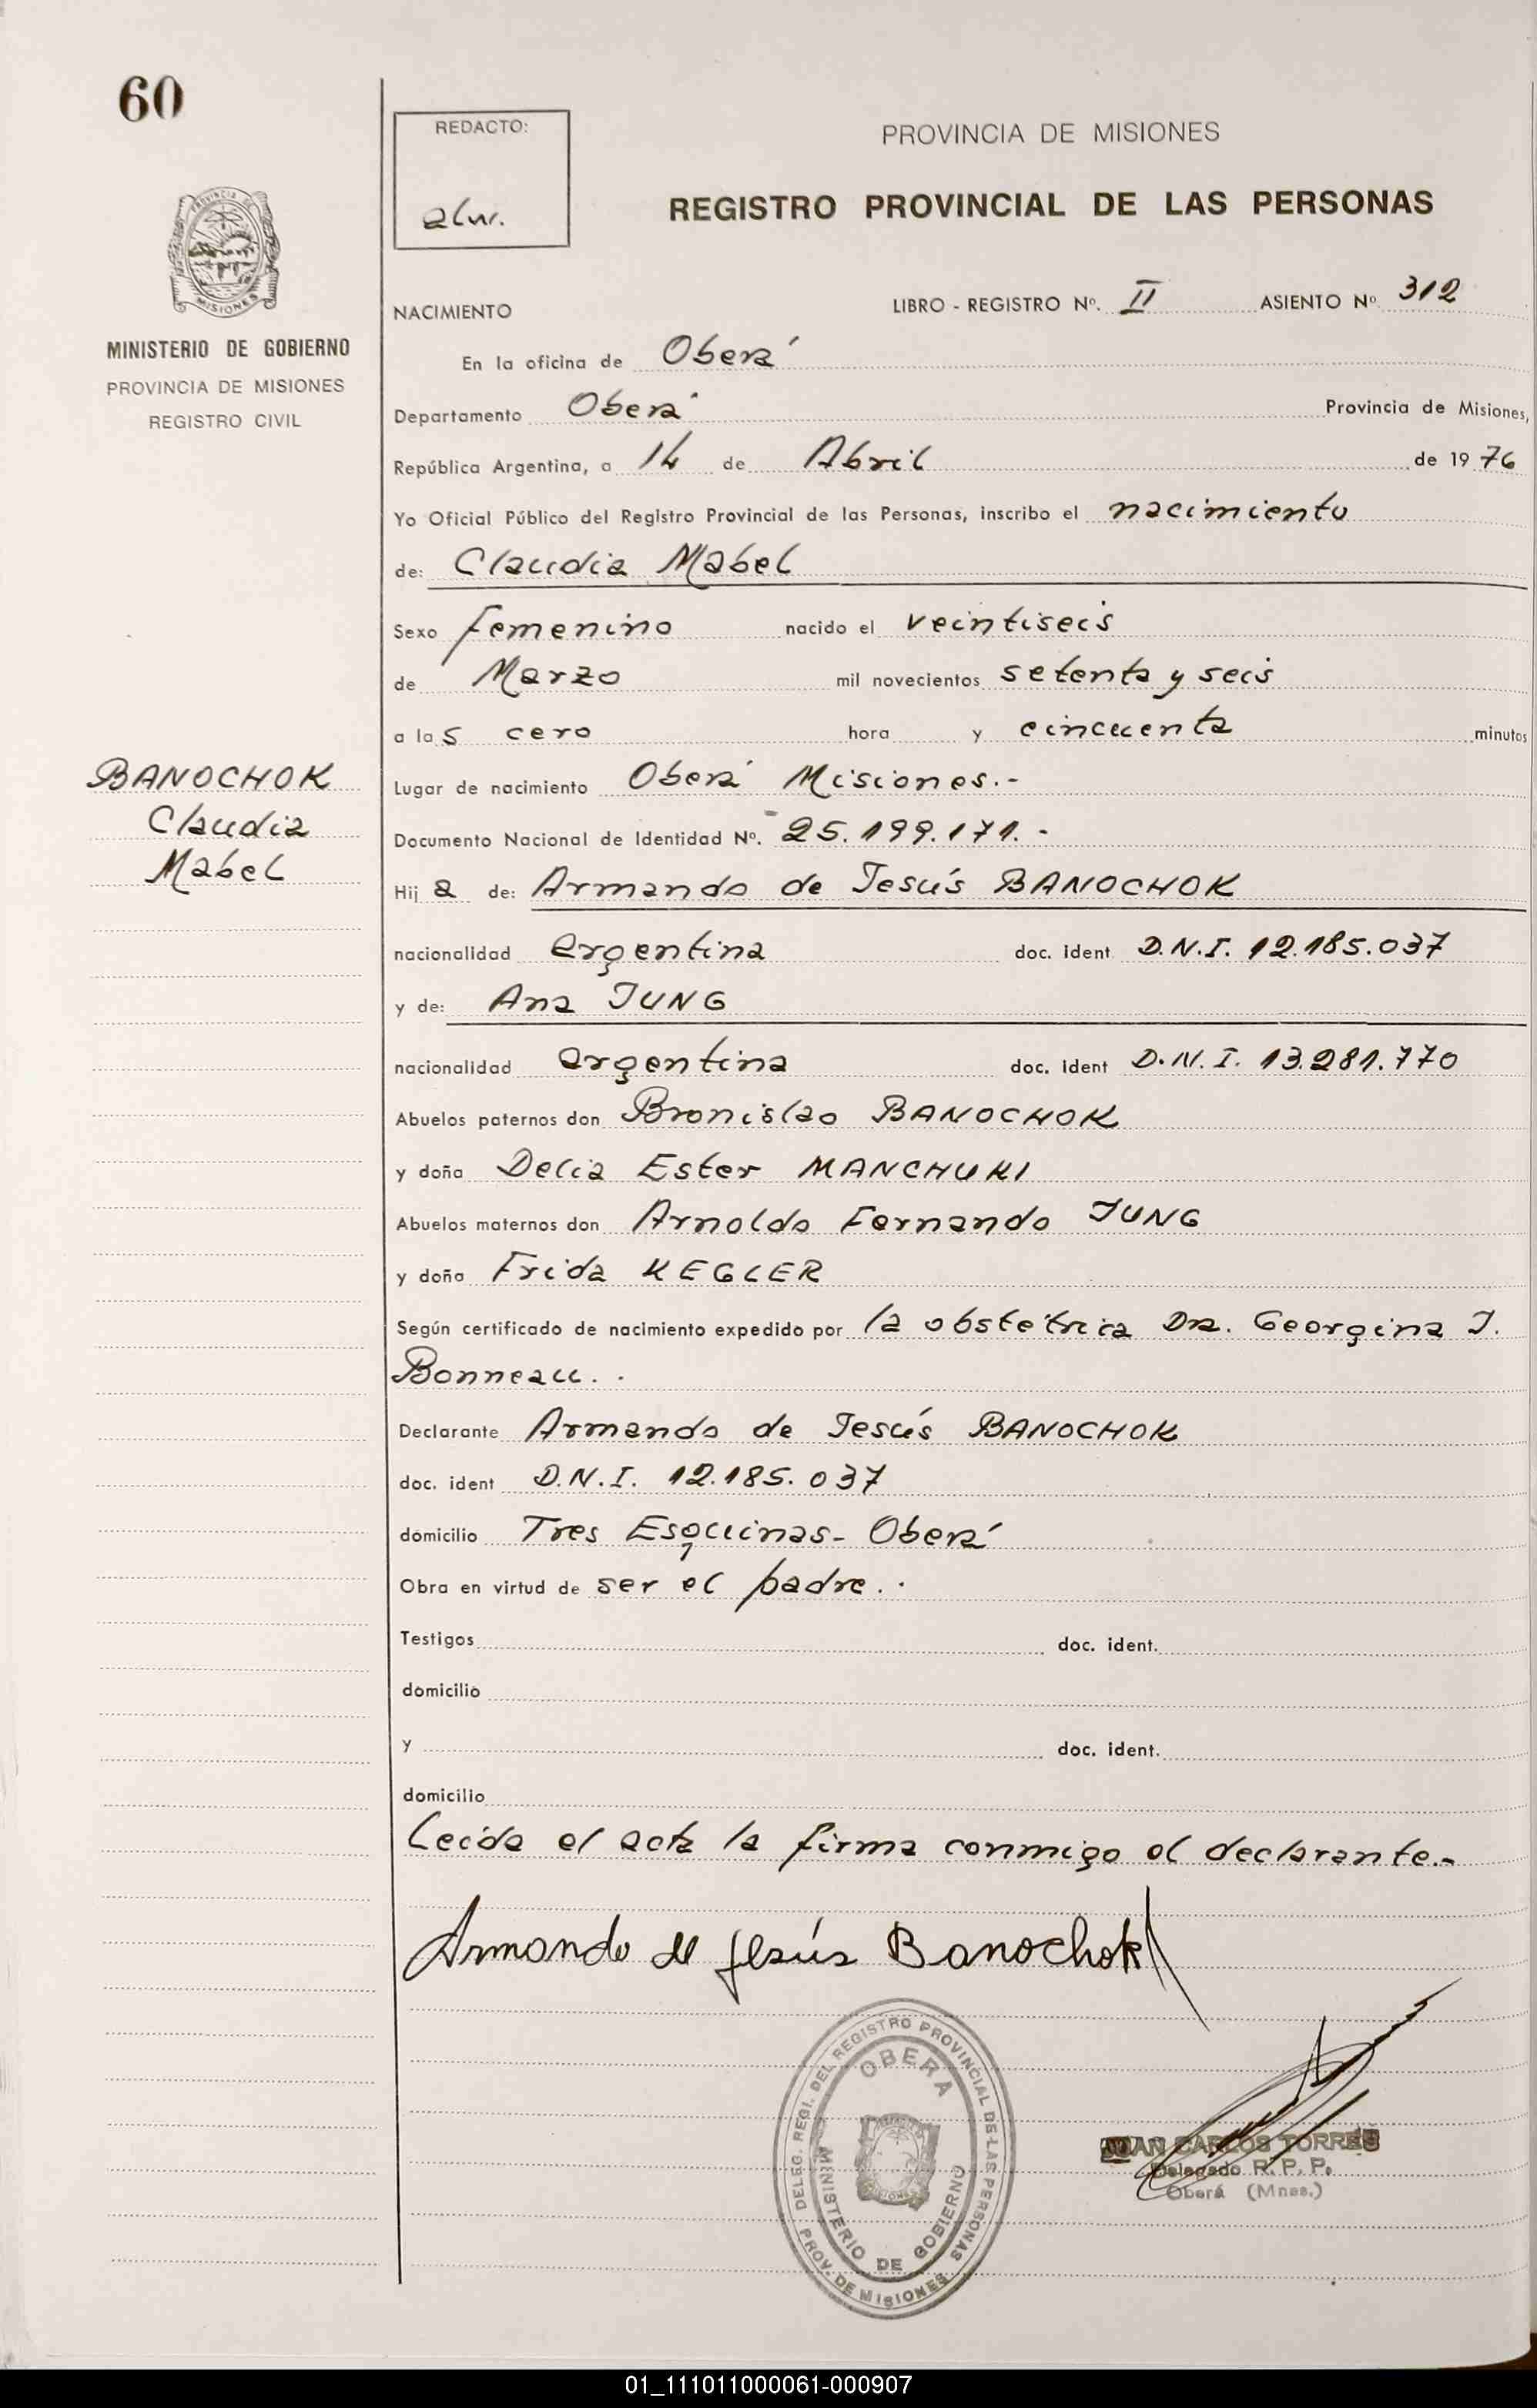 60
REDACTO:
PROVINCIA DE MISIONES
REGISTRO PROVINCIAL DE LAS PERSONAS
PROVINCIA DE
MISIONES
MINISTERIO DE GOBIERNO
PROVINCIA DE MISIONES
REGISTRO CIVIL
NACIMIENTO LIBRO - REGISTRO Nº. II ASIENTO Nº 312
En la oficina de Oberá
Departamento Oberá Provincia de Misiones,
República Argentina, a 14 de Abril de 1976
Yo Oficial Público del Registro Provincial de las Personas, inscribo el nacimiento
de: Claudia Mabel
Sexo femenino nacido el veintiseis
de Marzo mil novecientos setenta y seis
a las cero hora y cincuenta minutos
BANOCHOK
Claudia
Mabel
Lugar de nacimiento Oberá Misiones.-
Documento Nacional de Identidad Nº. 25.199.171.-
Hija de: Armando de Jesús BANOCHOK
nacionalidad argentina doc. ident D.N.I. 12.185.037
y de: Ana JUNG
nacionalidad argentina doc. ident D.N.I. 13.281.770
Abuelos paternos don Bronislao BANOCHOK
y doña Delia Ester MANCHUKI
Abuelos maternos don Arnoldo Fernando JUNG
y doña Frida KEGLER
Según certificado de nacimiento expedido por la obstetrica Dra. Georgina J.
Bonneau..
Declarante Armando de Jesús BANOCHOK
doc. ident D.N.I. 12.185.037
domicilio Tres Esquinas- Oberá
Obra en virtud de ser el padre..
Testigos doc. ident.
domicilio
y doc. ident.
domicilio
Leida el acta la firma conmigo el declarante.-
Armando de Jesús Banochok
DELEG. REGI. DEL REGISTRO PROVINCIAL DE LAS PERSONAS
OBERA
MINISTERIO DE GOBIERNO
PROV. DE MISIONES
JUAN CARLOS TORRES
Delegado R. P. P.
Oberá (Mnes.)
01_111011000061-000907